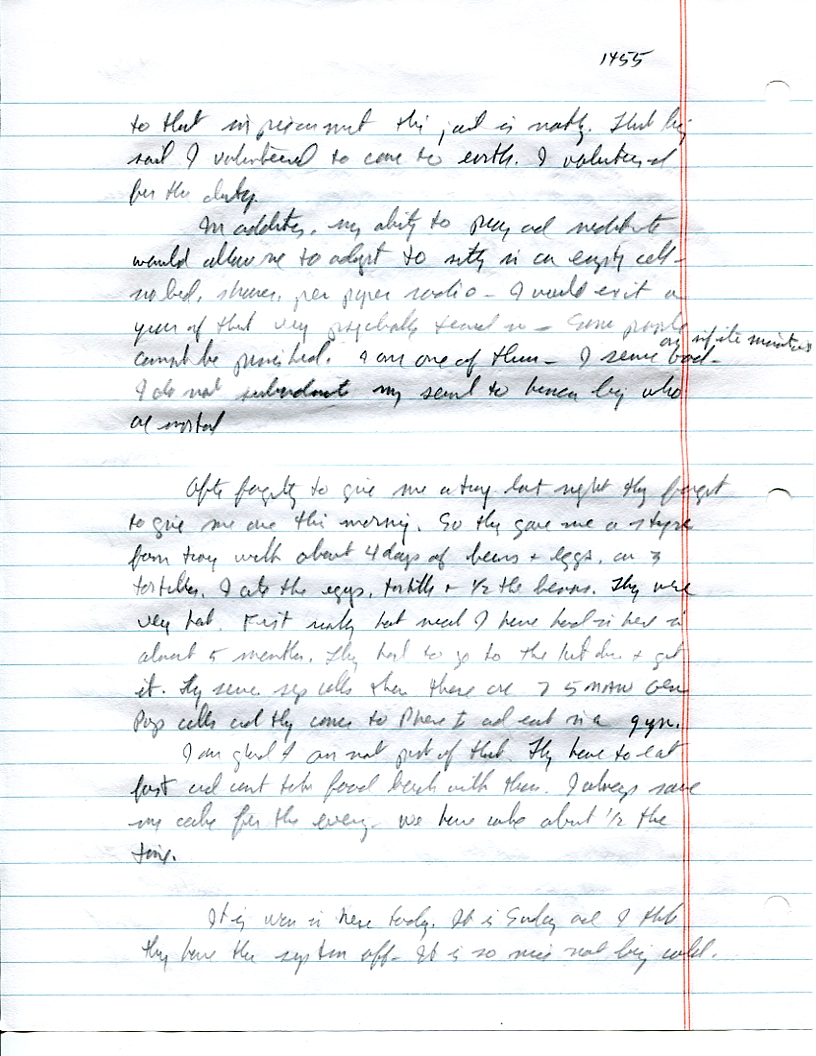 1455
to that imprisonment this jail is nothing. That being
said I volunteered to come to earth. I volunteered
for the duty.
In addition, my ability to pray and meditate
would allow me to adjust to sitting in an empty cell -
no bed, shower, pen paper radio - I would exit a
year of that very psychically - Some people
cannot be punished. I am one of them - I serve God -
an infinite
I do not my soul to human being who
are mortal
After forgetting to give me a tray last night they forgot
to give me one this morning. So they gave me a styro
foam tray with about 4 days of beans + eggs, and 3
tortillas. I ate the eggs, tortillas + 1/2 the beans. They were
very hot. First really hot meal I have had in here in
almost 5 months. They had to go to the kitchen + get
it. They serve seg cells then there are 7 5 man Gen
Pop cells and they come to Phase I and eat in a gym.
I am glad I am not part of that. They have to eat
fast and can't take food back with them. I always save
my cake for the evening - we have cake about 1/2 the
time.
It is warm in here today. It is Sunday and I think
they have the system off - It is so nice not being cold.